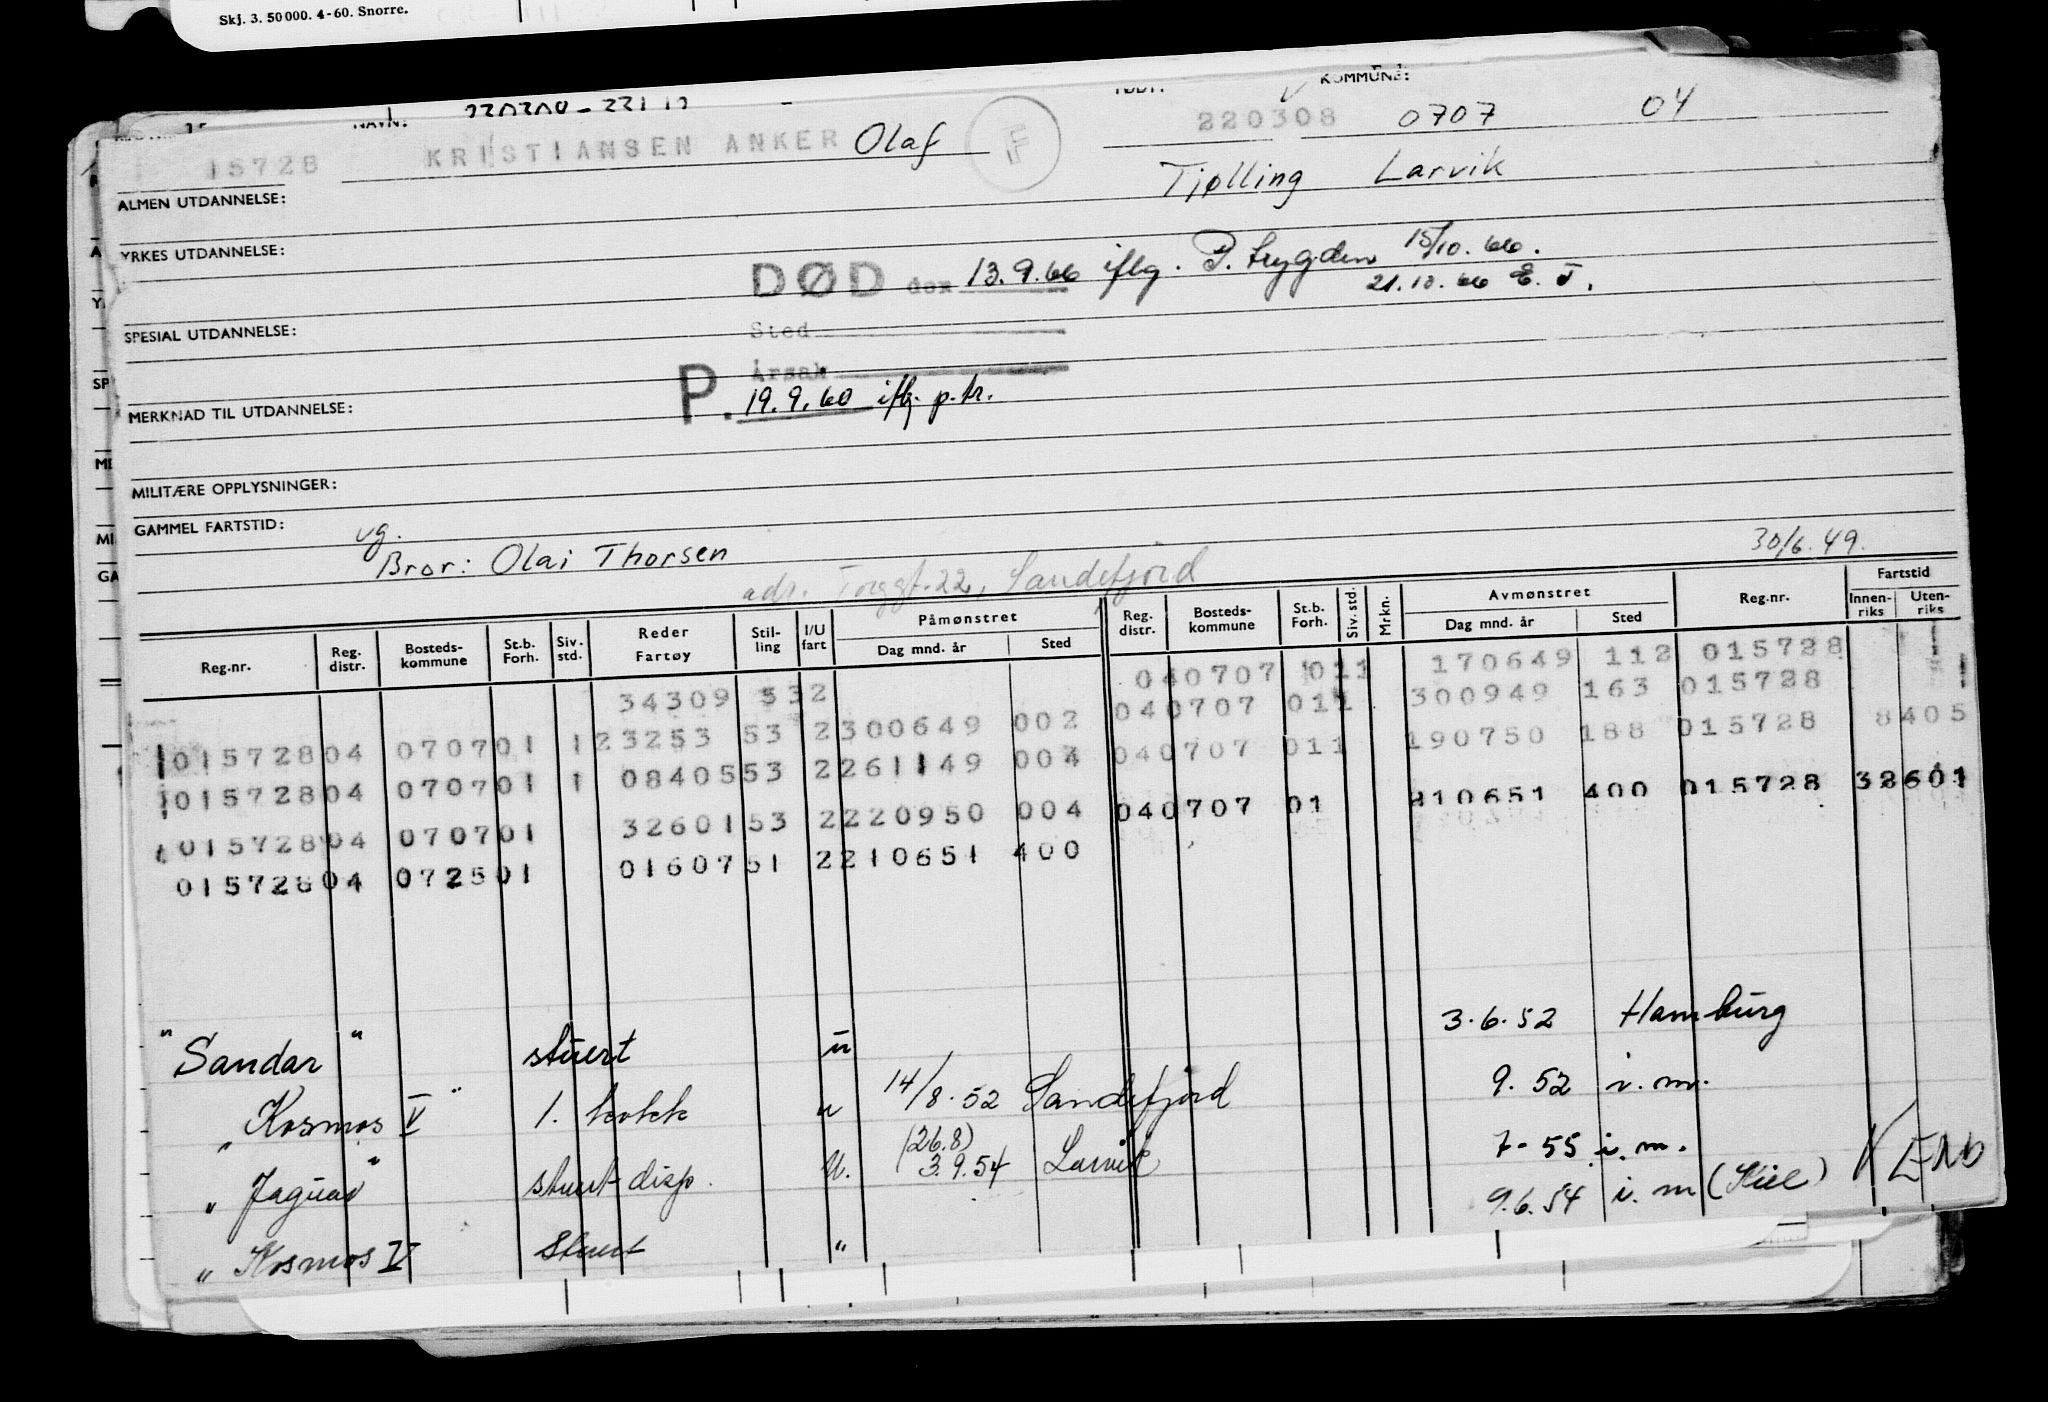 Skj. 3. 50000. 4-60. Snorre.
NAVN: KOMMUNE:
15728 KRISTIANSEN ANKER Olaf 220308 0707 04
Tjølling Larvik
ALMEN UTDANNELSE:
YRKES UTDANNELSE:
DØD den 13.9.66 iflg. P. trygden 15/10.66.
21.10.66 E. T.
SPESIAL UTDANNELSE:
Sted
Årsak
P. 19.9.60 iflg. p.tr.
MERKNAD TIL UTDANNELSE:
MILITÆRE OPPLYSNINGER:
GAMMEL FARTSTID:
vg.
Bror: Olai Thorsen 30/6.49.
adr. Torggt. 22, Sandefjord
Reg.nr. Reg. distr. Bosteds-kommune St.b. Forh. Siv. std. Reder Fartøy Stil-ling I/U fart Påmønstret Dag mnd. år Sted Reg. distr. Bosteds-kommune St.b. Forh. Siv. std. Mrkn. Avmønstret Dag mnd. år Sted Reg.nr. Fartstid Innen-riks Uten-riks
34309 532 040707 011 170649 112 015728
015728 04 0707 01 1 23253 53 2 300649 002 040707 011 300949 163 015728
015728 04 0707 01 1 08405 53 2 261149 004 040707 011 190750 188 015728 8405
015728 04 0707 01 32601 53 2 220950 004 040707 01 210651 400 015728 32601
015728 04 0725 01 01607 51 2 210651 400
"Sandar" stuert u 3.6.52 Hamburg
"Kosmos V" 1. kokk u 14/8.52 Sandefjord 9.52 i.m.
"Jaguar" stuert disp. U. (26.8) 3.9.54 Larvik 7-55 i.m.
"Kosmos V stuert " 9.6.54 i.m (Kiel) V END